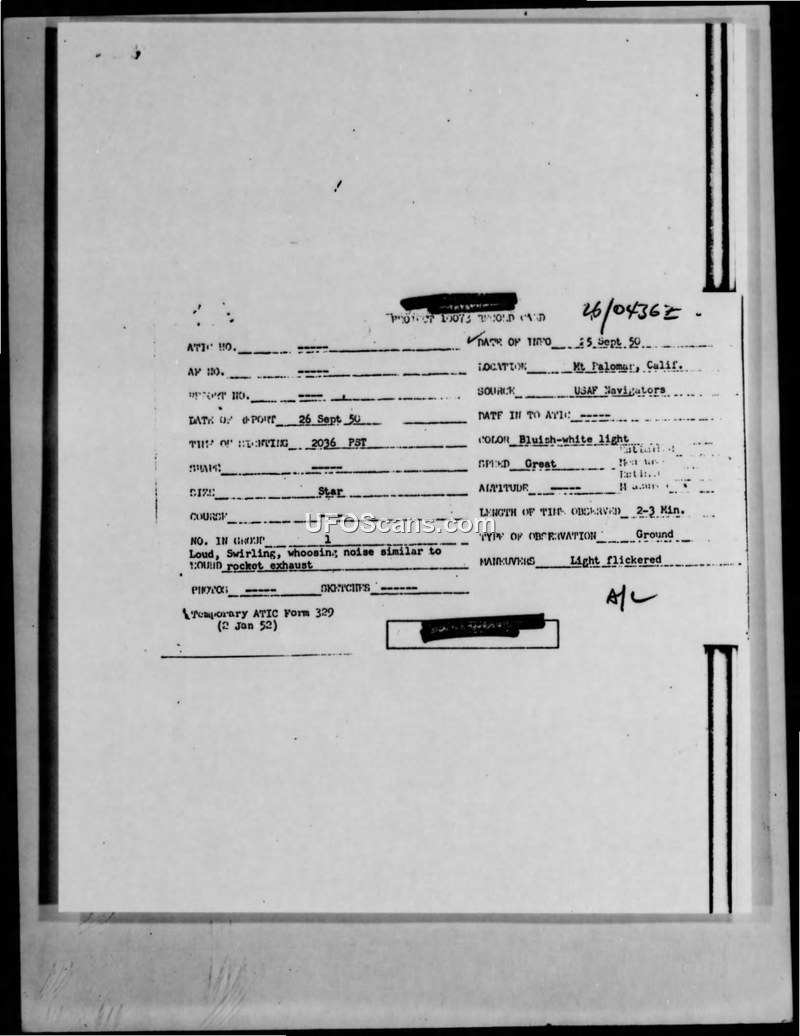 PROJECT 10073 RECORD CARD
26/0436Z
ATIC NO. -----
AF NO. -----
REPORT NO. ----
DATE OF REPORT 26 Sept 50
TIME OF SIGHTING 2036 PST
SHAPE -----
SIZE Star
COURSE
NO. IN GROUP 1
Loud, Swirling, whoosing noise similar to
SOUND rocket exhaust
PHOTOS ----- SKETCHES ------
Temporary ATIC Form 329
(2 Jan 52)
DATE OF INFO 25 Sept 50
LOCATION Mt Palomar, Calif.
SOURCE USAF Navigators
DATE IN TO ATIC -----
COLOR Bluish-white light
SPEED Great
ALTITUDE -----
LENGTH OF TIME OBSERVED 2-3 Min.
TYPE OF OBSERVATION Ground
MANEUVERS Light flickered
A/C
UFOScans.com